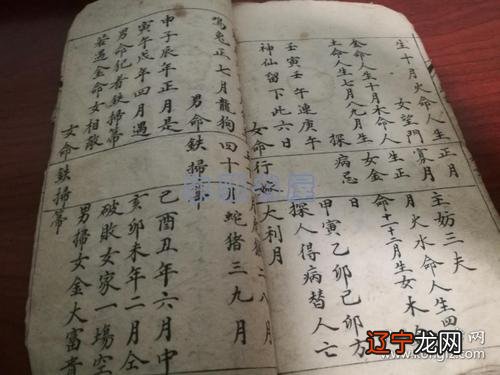 生十月火命人生正月
女望門寡月
主妨三夫
金命人生十月木命人生正
月火水命人生四
土命人生七八九月生女金
命十一十二月生女木
探病忌日
壬寅壬午連庚午
甲寅乙卯己卯方
神仙留下此六日
探人得病替人亡
女命行嫁大利月
二八月
鳴兔正七月龍狗四十月蛇猪三九月
男命鉄掃帚
申子辰年正月是
己酉丑年六月中
寅午戌年四月遇
亥卯未年二月仝
男命犯着鉄掃帚
破敗女家一場空
若遇金命女相敵
男掃女金大富貴
女命鉄掃帚
辽宁龙网